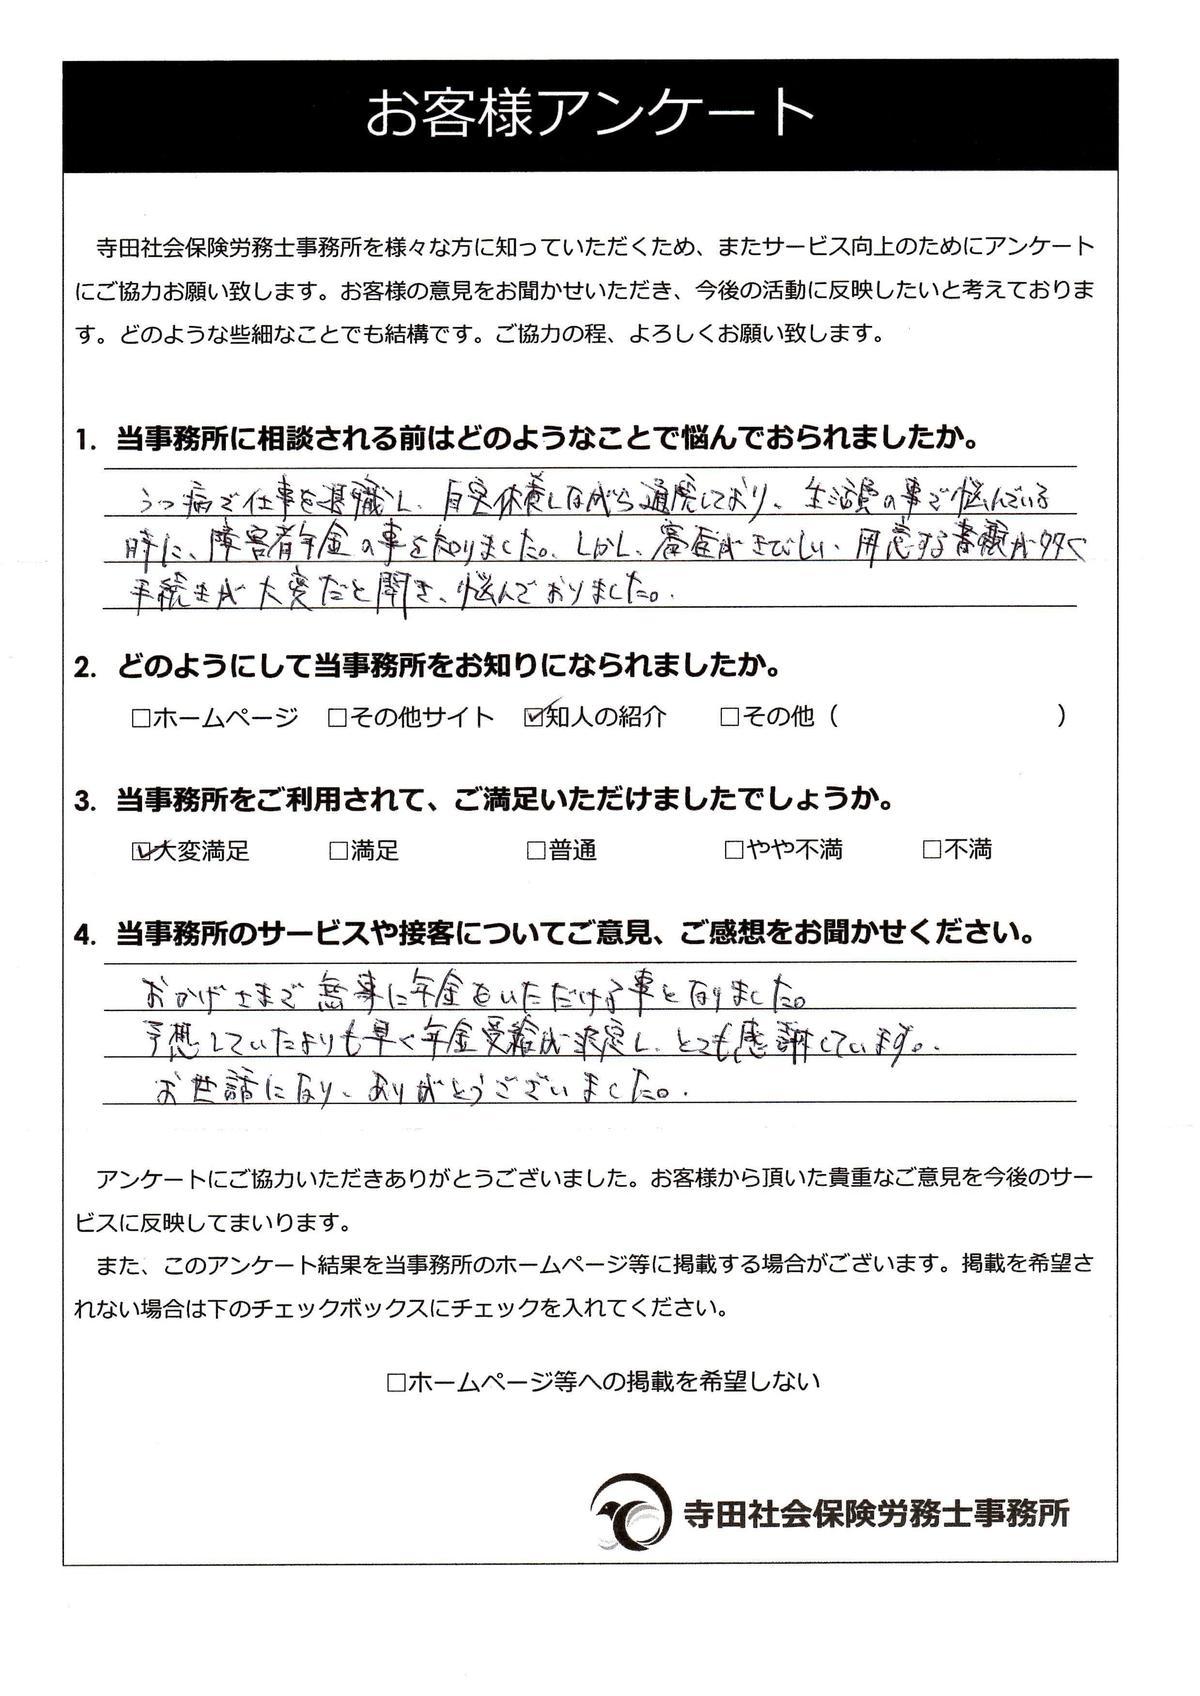 お客様アンケート
寺田社会保険労務士事務所を様々な方に知っていただくため、またサービス向上のためにアンケート
にご協力お願い致します。お客様の意見をお聞かせいただき、今後の活動に反映したいと考えておりま
す。どのような些細なことでも結構です。ご協力の程、よろしくお願い致します。
1. 当事務所に相談される前はどのようなことで悩んでおられましたか。
うつ病で仕事を退職し、自宅休養しながら通院しており、生活費の事で悩んでいる
時に、障害者年金の事を知りました。しかし、審査がきびしい、用意する書類が多く
手続きが大変だと聞き、悩んでおりました。
2. どのようにして当事務所をお知りになられましたか。
□ホームページ □その他サイト ☑知人の紹介 □その他（ ）
3. 当事務所をご利用されて、ご満足いただけましたでしょうか。
☑大変満足 □満足 □普通 □やや不満 □不満
4. 当事務所のサービスや接客についてご意見、ご感想をお聞かせください。
おかげさまで無事に年金をいただける事となりました。
予想していたよりも早く年金受給が決定し、とても感謝しています。
お世話になり、ありがとうございました。
アンケートにご協力いただきありがとうございました。お客様から頂いた貴重なご意見を今後のサー
ビスに反映してまいります。
また、このアンケート結果を当事務所のホームページ等に掲載する場合がございます。掲載を希望さ
れない場合は下のチェックボックスにチェックを入れてください。
□ホームページ等への掲載を希望しない
寺田社会保険労務士事務所